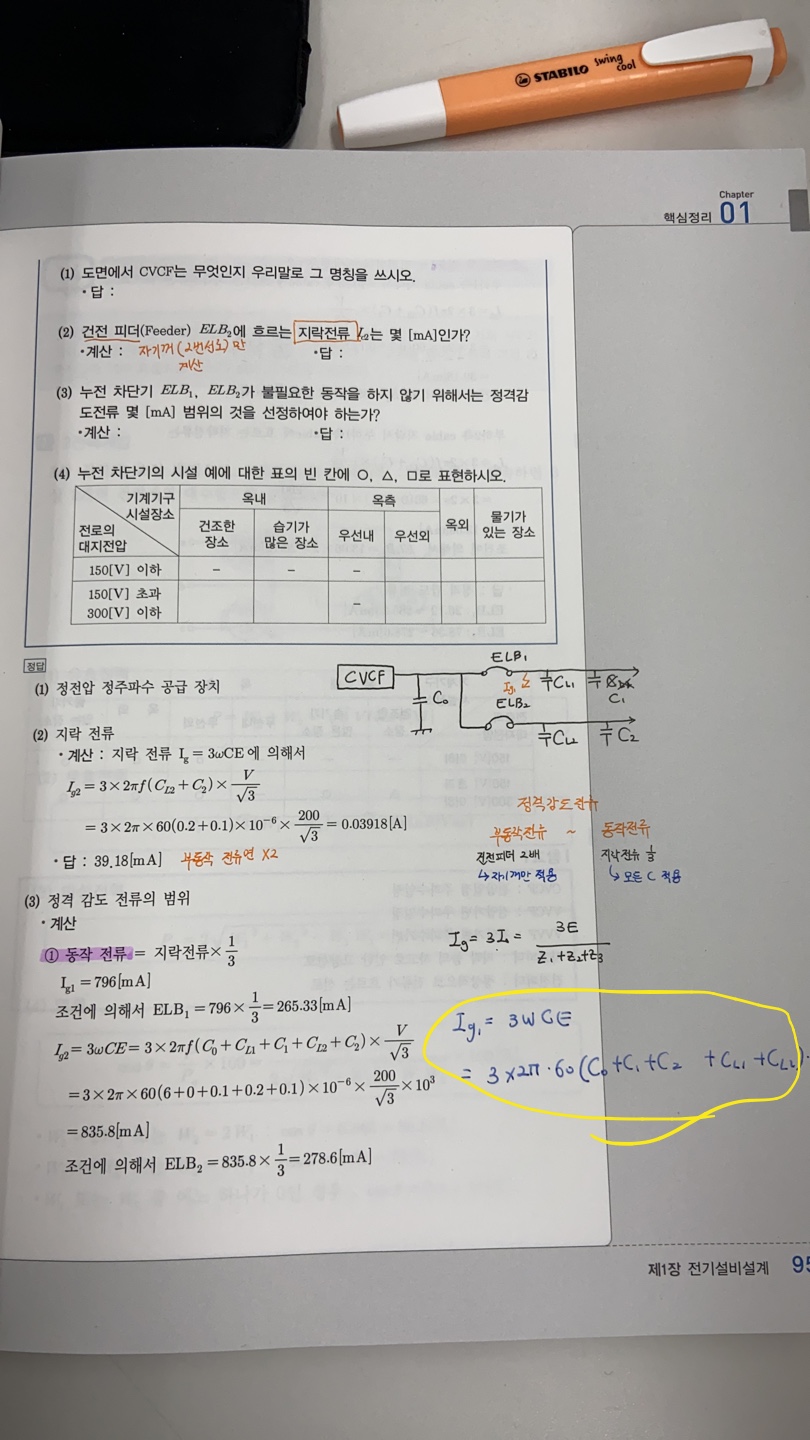 STABILO swing cool
Chapter
핵심정리 01
(1) 도면에서 CVCF는 무엇인지 우리말로 그 명칭을 쓰시오.
• 답 :
(2) 건전 피더(Feeder) ELB₂에 흐르는 지락전류 I_{g2}는 몇 [mA]인가?
• 계산 : 자기꺼 (2번선로) 만
계산
• 답 :
(3) 누전 차단기 ELB₁, ELB₂가 불필요한 동작을 하지 않기 위해서는 정격감
도전류 몇 [mA] 범위의 것을 선정하여야 하는가?
• 계산 : • 답 :
(4) 누전 차단기의 시설 예에 대한 표의 빈 칸에 O, △, □로 표현하시오.
기계기구 시설장소
전로의 대지전압
옥내 옥측 옥외 물기가 있는 장소
건조한 장소 습기가 많은 장소 우선내 우선외
150[V] 이하 – – –
150[V] 초과 300[V] 이하 –
정답
(1) 정전압 정주파수 공급 장치
CVCF C₀ ELB₁ Ig₁ C_{L1} C₁
ELB₂ C_{L2} C₂
(2) 지락 전류
• 계산 : 지락 전류 I_g = 3ωCE에 의해서
I_{g2} = 3×2πf(C_{L2}+C₂)×V/√3
= 3×2π×60(0.2+0.1)×10⁻⁶×200/√3 = 0.03918[A]
• 답 : 39.18[mA] 부동작 전류엔 X2
정격감도전류
부동작전류 ~ 동작전류
건전피더 2배 지락전류 1/3
↳자기꺼만 적용 ↳모든 C 적용
(3) 정격 감도 전류의 범위
• 계산
① 동작 전류 = 지락전류×1/3
I_{g1} = 796[mA]
조건에 의해서 ELB₁ = 796×1/3 = 265.33[mA]
I_{g2} = 3ωCE = 3×2πf(C₀+C_{L1}+C₁+C_{L2}+C₂)×V/√3
= 3×2π×60(6+0+0.1+0.2+0.1)×10⁻⁶×200/√3×10³
= 835.8[mA]
조건에 의해서 ELB₂ = 835.8×1/3 = 278.6[mA]
Ig = 3I₀ = 3E/(Z₁+Z₂+Z₃)
Ig₁ = 3WCE
= 3×2π·60(C₀+C₁+C₂ +C_{L1}+C_{L2})·
제1장 전기설비설계 95